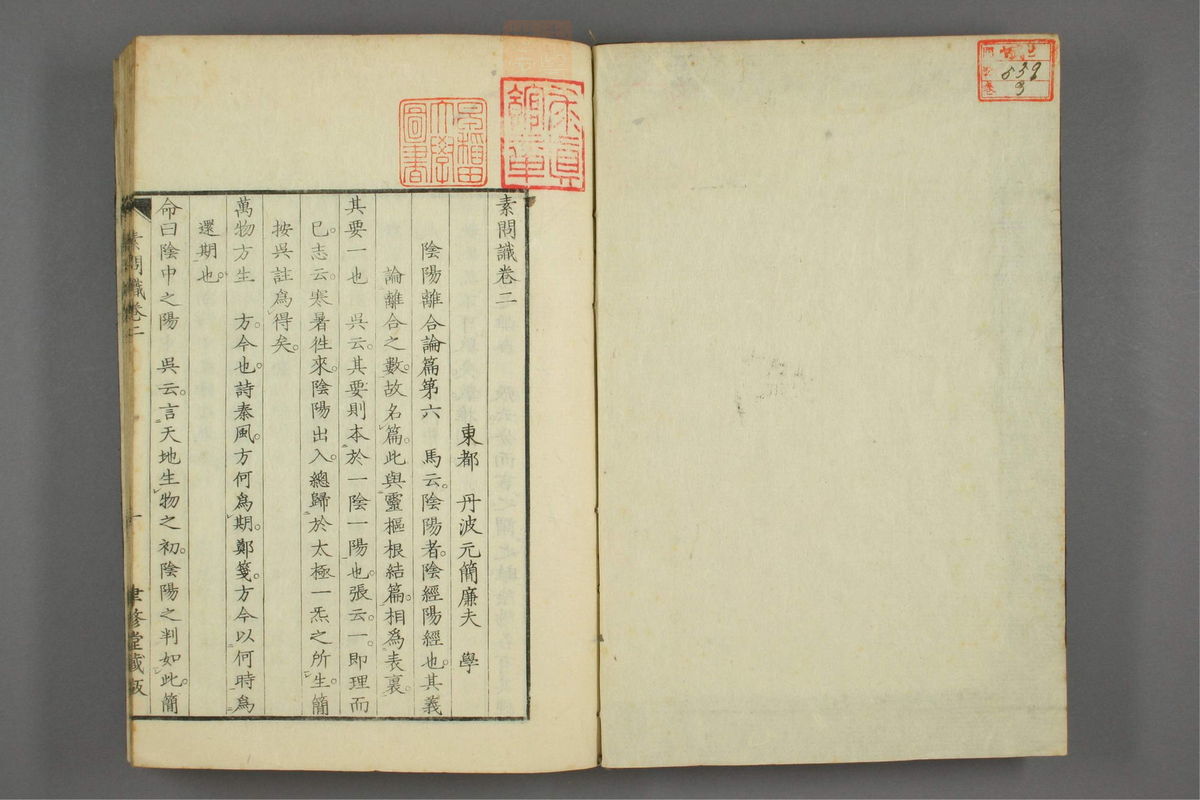 素問識卷二
東都 丹波元簡廉夫 學
陰陽離合論篇第六 馬云。陰陽者。陰經陽經也。其義
論離合之數。故名篇。此與靈樞根結篇。相爲表裏。
其要一也 吳云。其要則本於一陰一陽也。張云。一。即理而
已。志云。寒暑徃來。陰陽出入。總歸於太極一炁之所生。簡
按吳註爲得矣。
萬物方生 方。今也。詩秦風。方何爲期。鄭箋。方今以何時爲
還期也。
命曰陰中之陽 吳云。言天地生物之初。陰陽之判如此。簡
素問識卷二
一
聿修堂藏版
早稲田大學圖書
門
號
卷
839
3